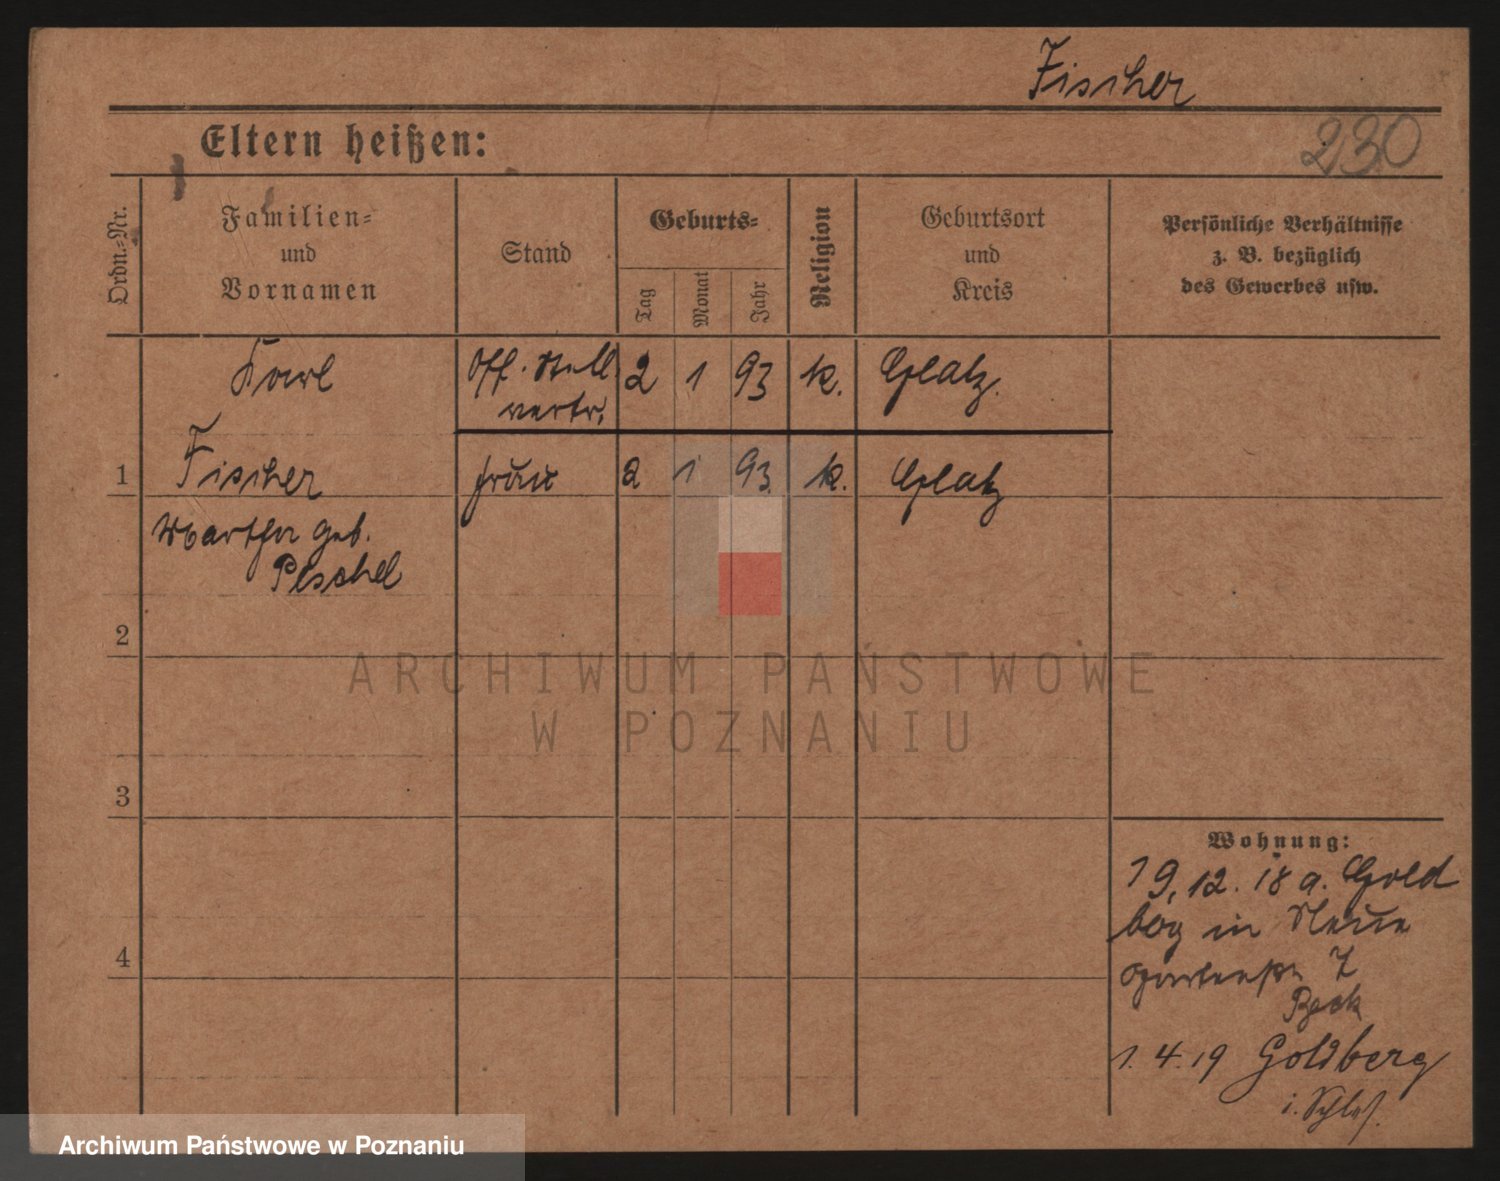 Fischer
230
Eltern heißen:
Ordn.-Nr.
Familien-
und
Vornamen
Stand
Geburts-
Tag
Monat
Jahr
Religion
Geburtsort
und
Kreis
Persönliche Verhältnisse
z. B. bezüglich
des Gewerbes usw.
Karl Off. Stell 2 1 93 k. Glatz.
vertr.
1 Fischer frau 2 1 93. k. Glatz
Martha geb.
Peschel
2
ARCHIWUM PAŃSTWOWE
W POZNANIU
3
Wohnung:
19.12.18 a. Gold
bog in Neue
Gartenstr. 7
4
1.4.19 Goldberg
i. Schles.
Archiwum Państwowe w Poznaniu